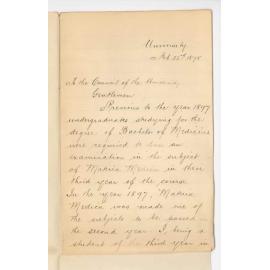 University
Feb. 25th 1898
To the Council of the University
Gentlemen
Previous to the year 1897
undergraduates studying for the
degree of Bachelor of Medicine
were required to pass an
examination in the subject
of Materia Medica in their
third year of the course
In the year 1897, Materia
Medica was made one of
the subjects to be passed in
the second year. I, being a
student of the third year in